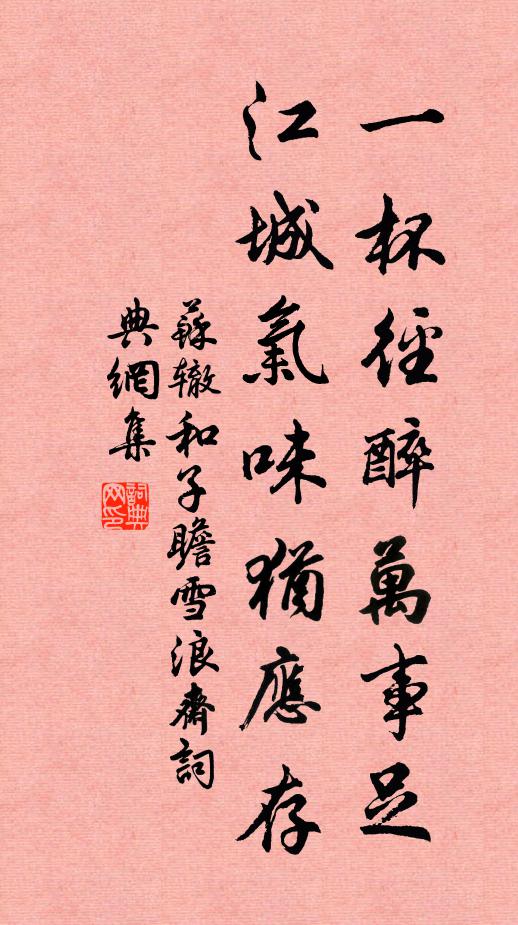 一杯徑醉萬事足
江城氣味猶應存
蘇辙和子瞻雪浪齋詞
典網集
詞典网印